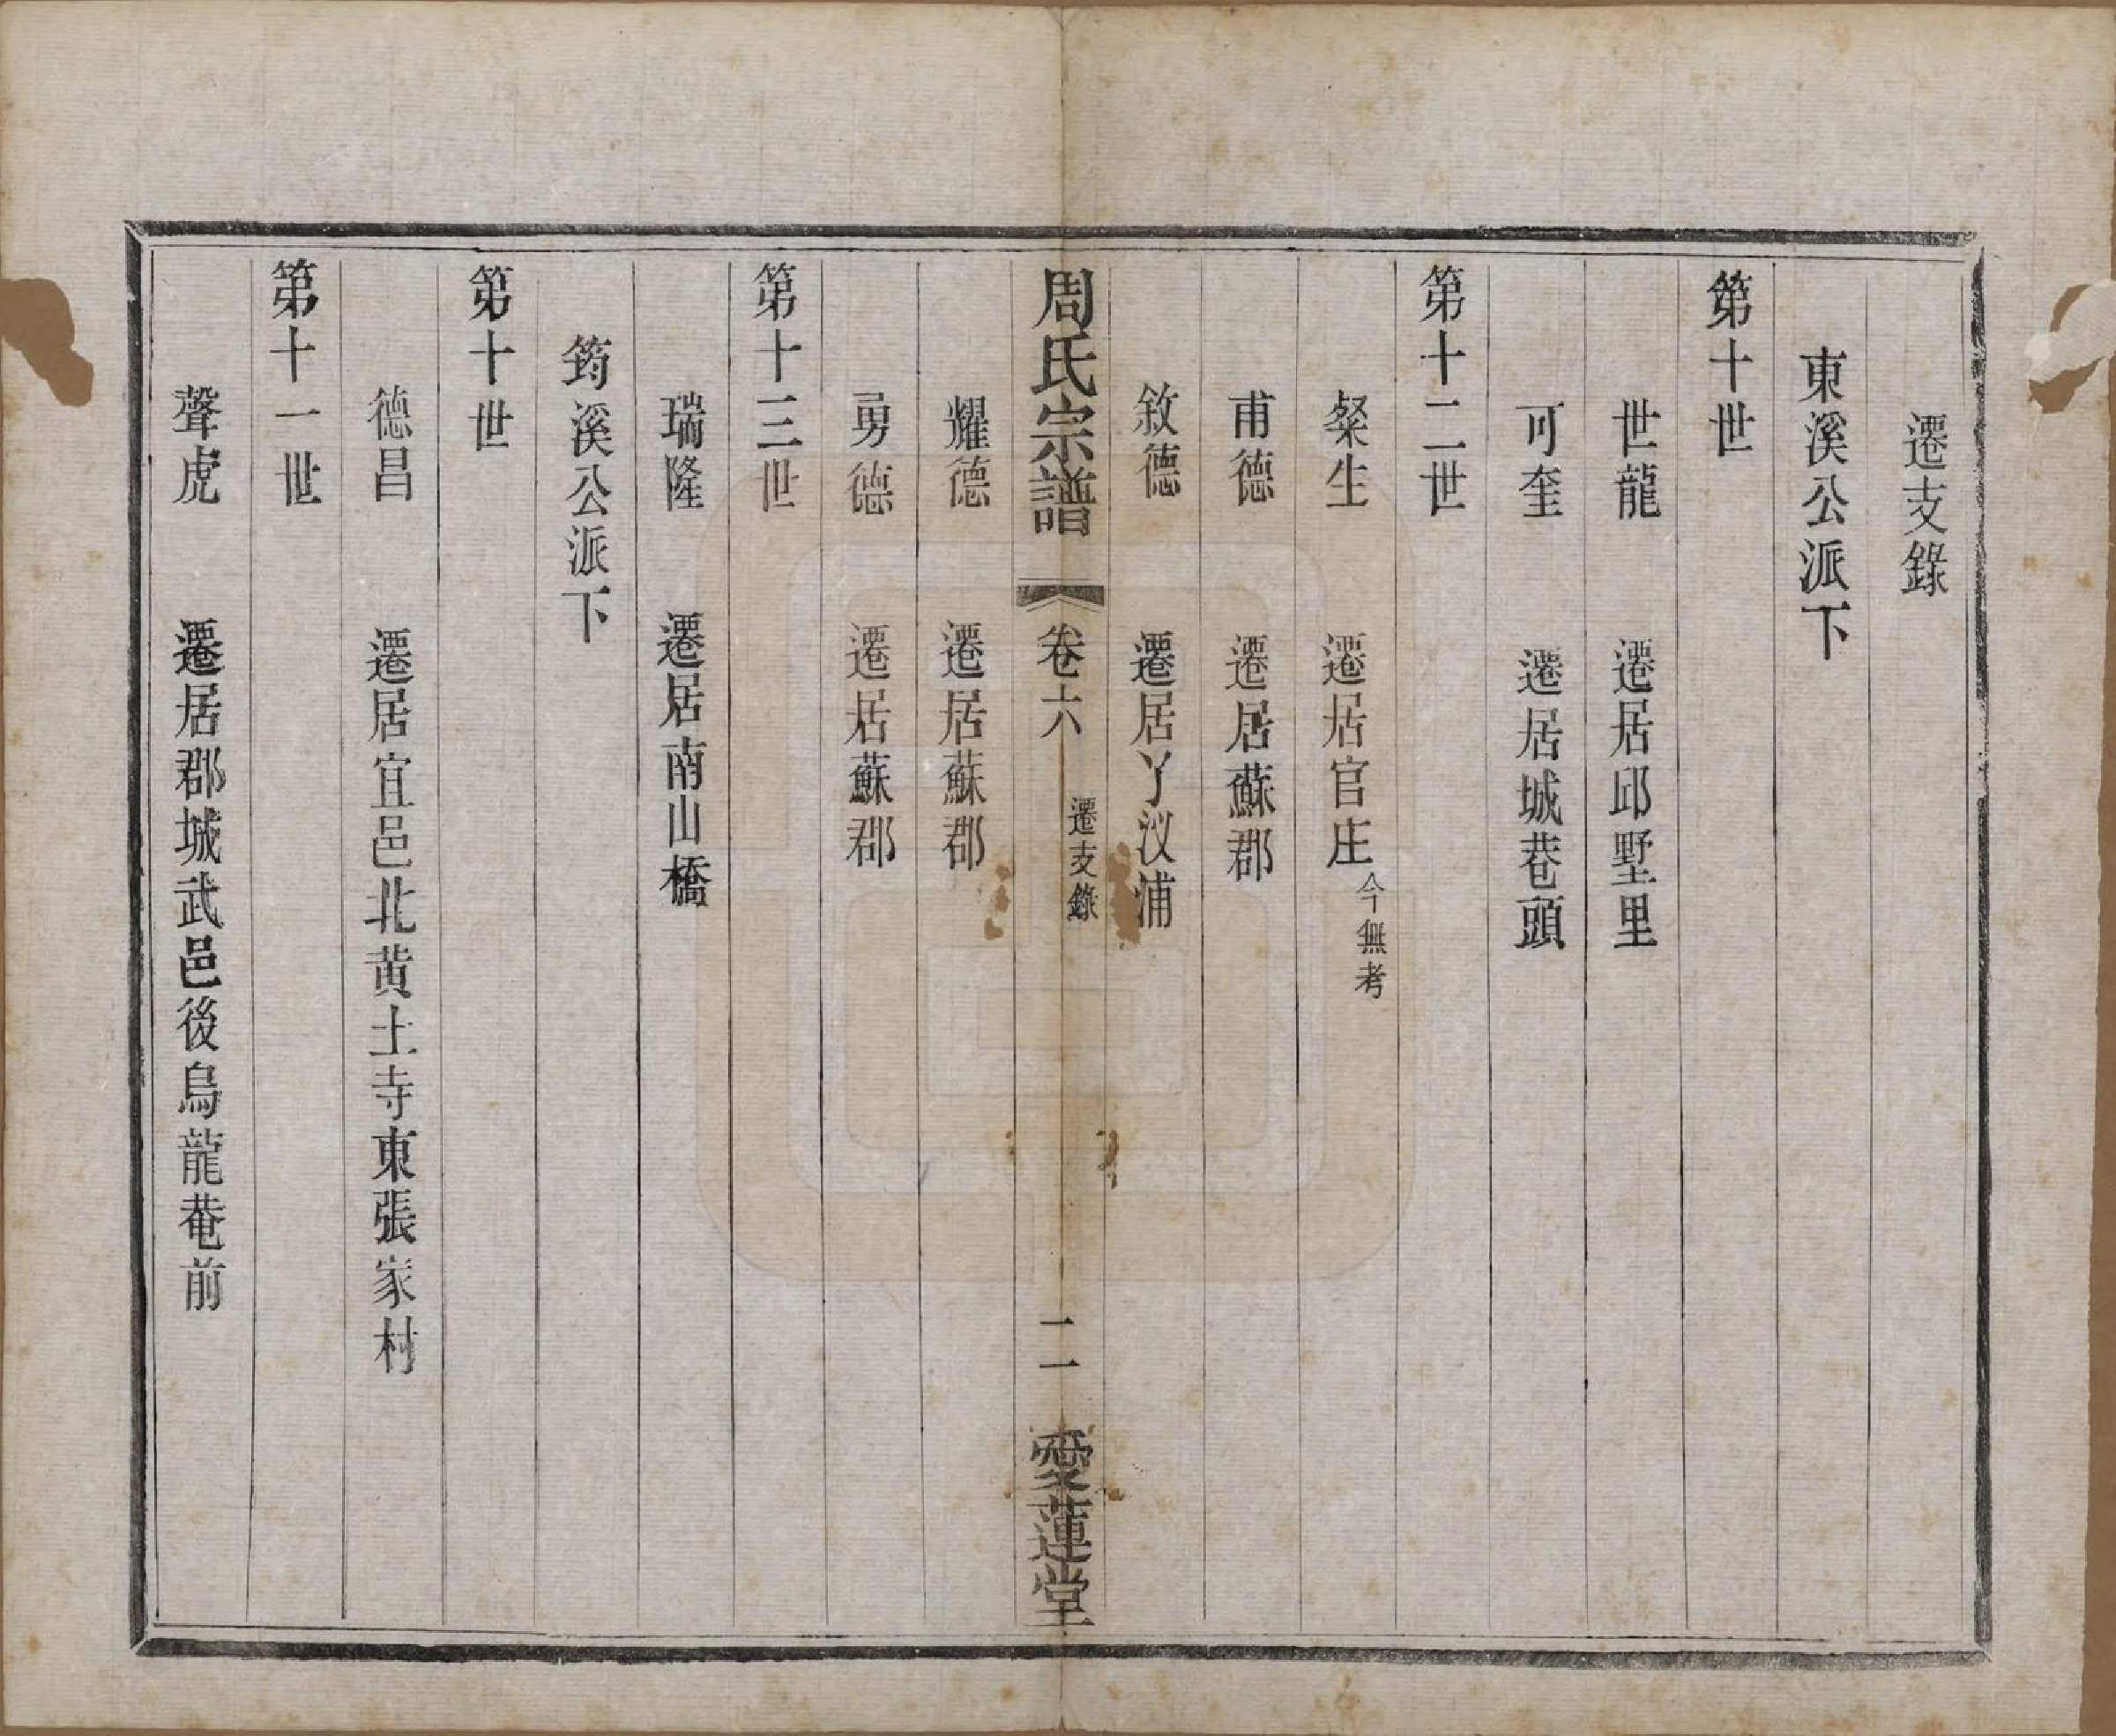 遷支錄
東溪公派下
第十世
世龍 遷居邱墅里
可奎 遷居城巷頭
第十二世
粲生 遷居官庄今無考
甫德 遷居蘇郡
敘德 遷居丫汊浦
周氏宗譜 卷六 遷支錄 二 愛蓮堂
耀德 遷居蘇郡
勇德 遷居蘇郡
第十三世
瑞隆 遷居南山橋
筠溪公派下
第十世
德昌 遷居宜邑北黄土寺東張家村
第十一世
聲虎 遷居郡城武邑後烏龍菴前